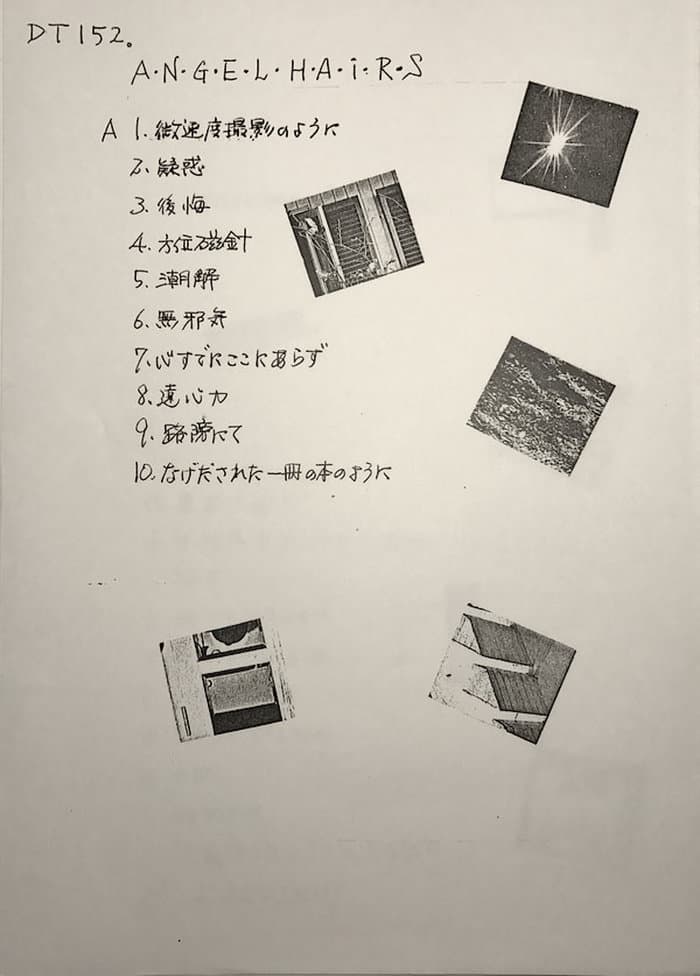 DT152。
A・N・G・E・L・H・A・i・R・S
A 1. 微速度撮影のように
2. 疑惑
3. 後悔
4. 方位磁針
5. 潮解
6. 無邪気
7. 心すでにここにあらず
8. 遠心力
9. 路傍にて
10. なげだされた一冊の本のように